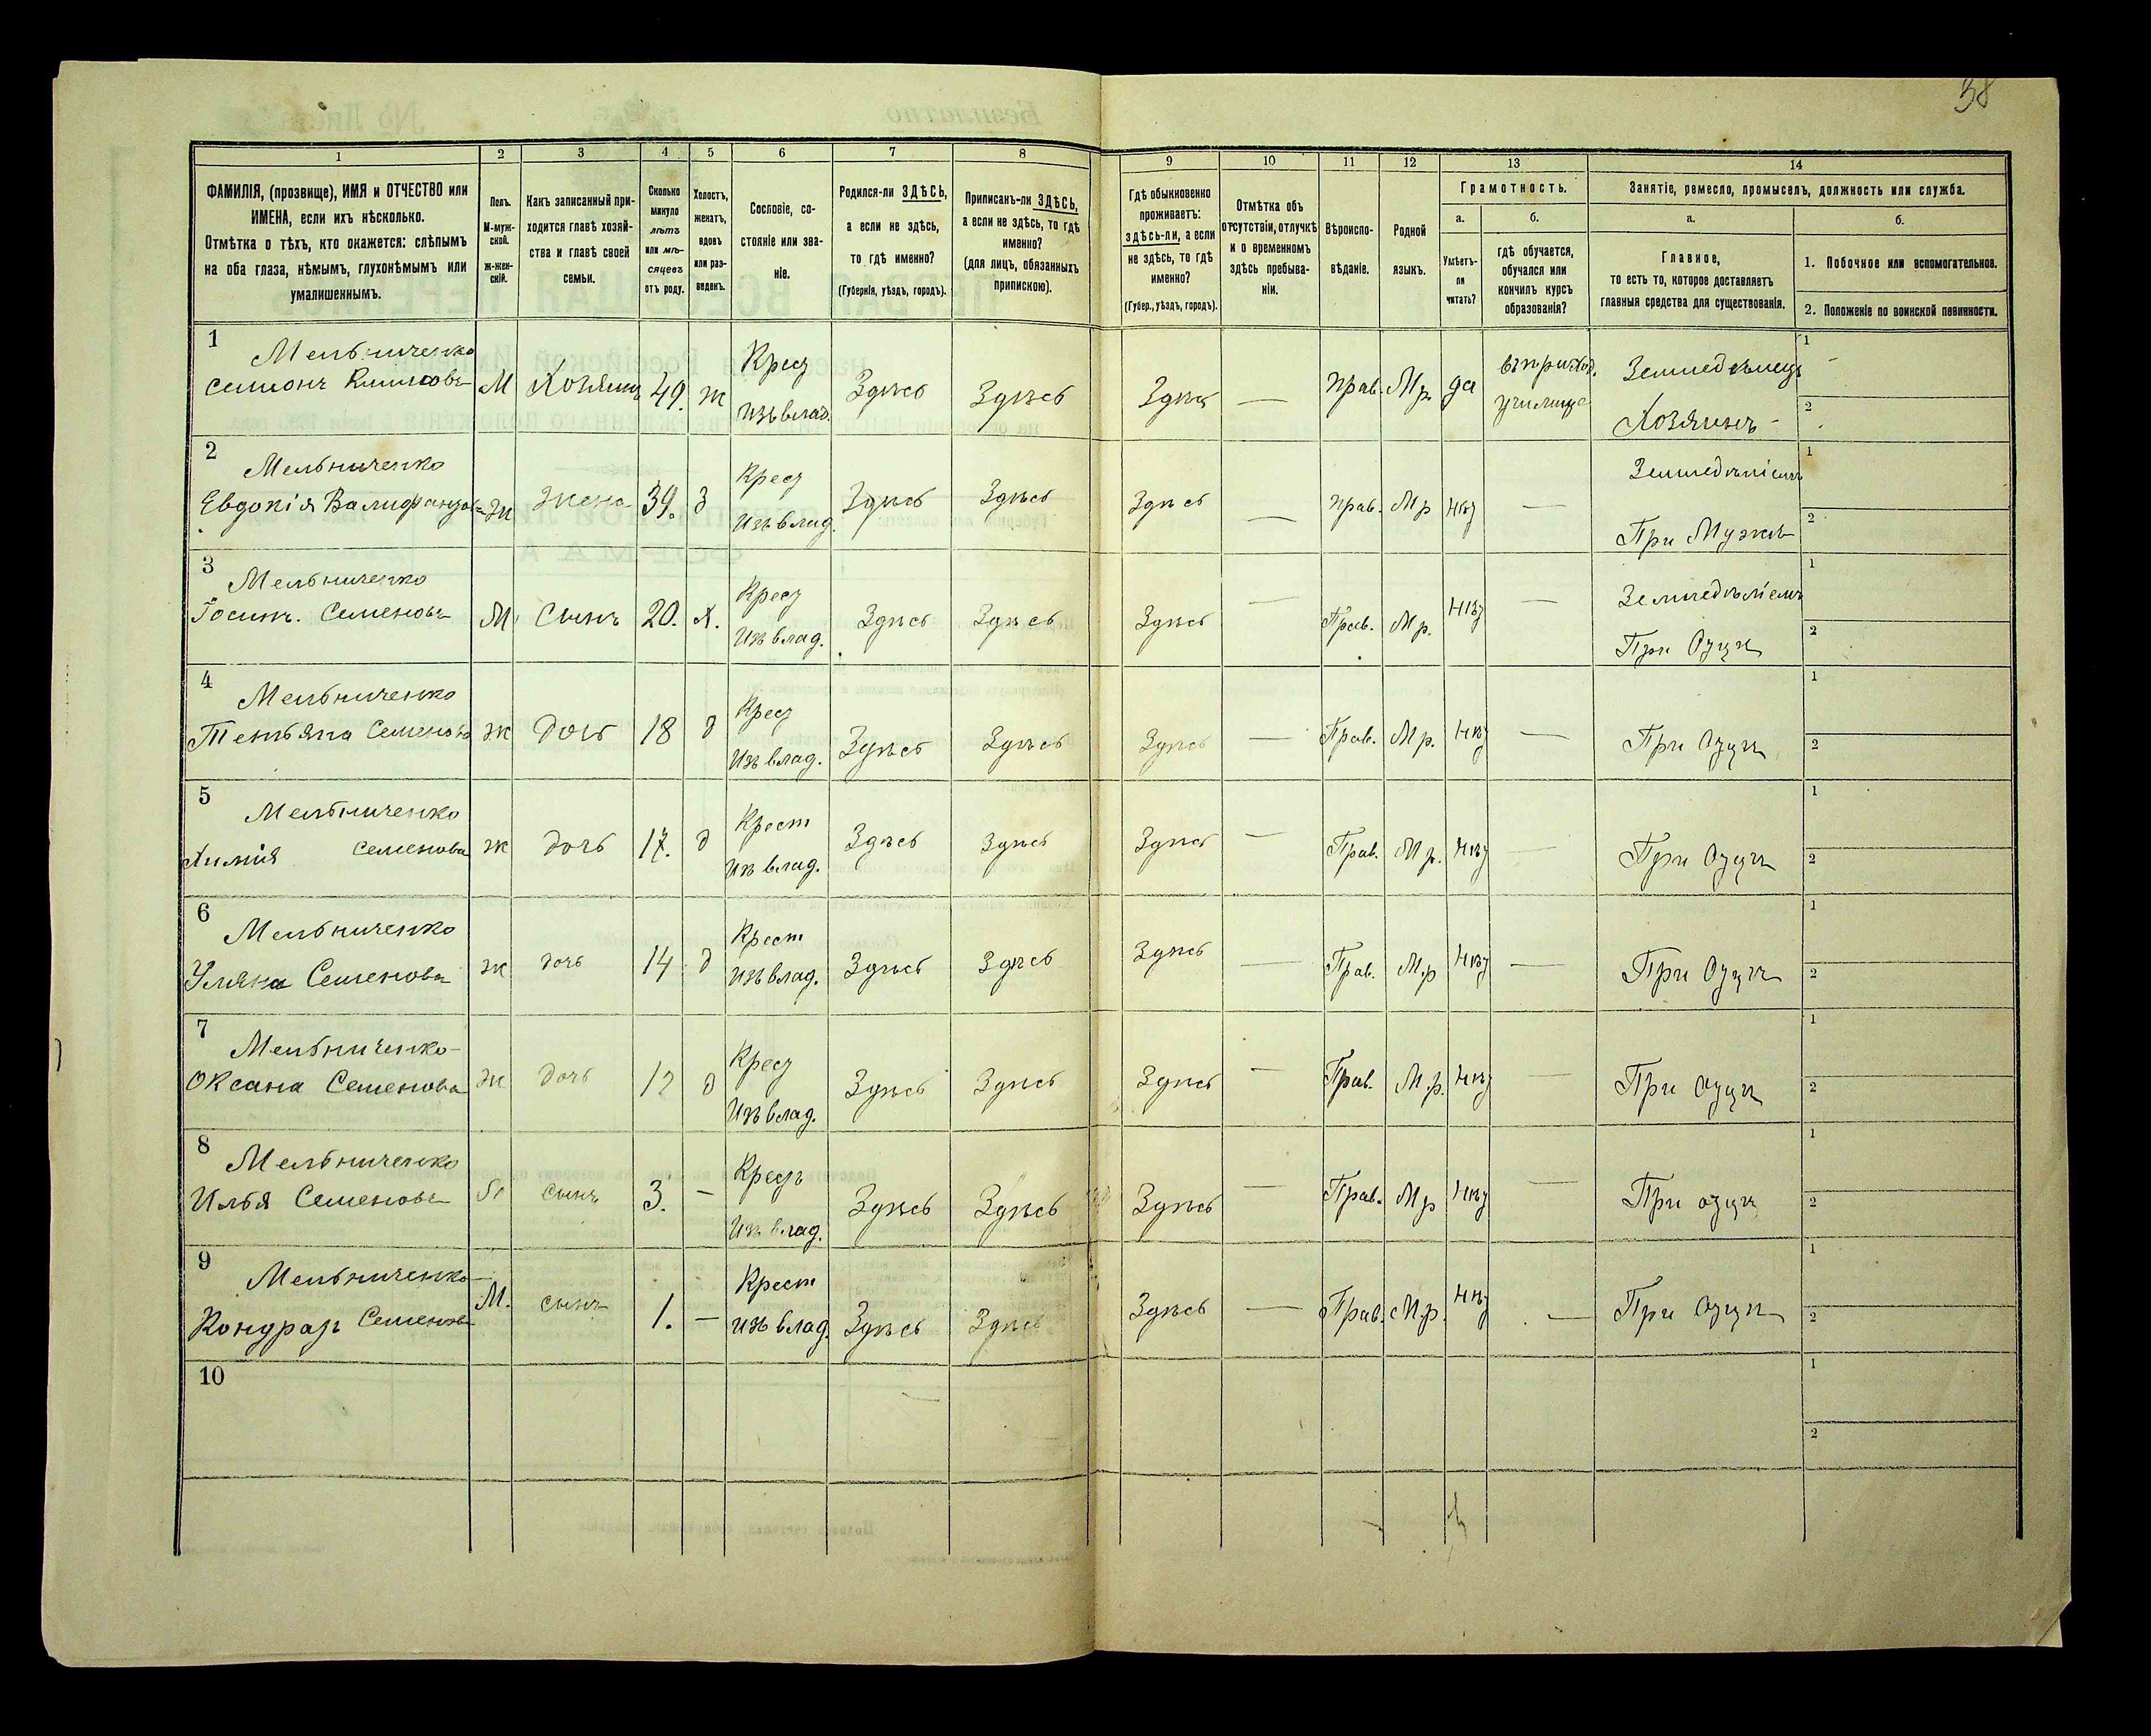 38
1 2 3 4 5 6 7 8 9 10 11 12 13 14
ФАМИЛІЯ, (прозвище), ИМЯ и ОТЧЕСТВО или
ИМЕНА, если ихъ нѣсколько.
Отмѣтка о тѣхъ, кто окажется: слѣпымъ
на оба глаза, нѣмымъ, глухонѣмымъ или
умалишеннымъ.
Полъ.
М-муж-
ской.
ж-жен-
скій.
Какъ записанный при-
ходится главѣ хозяй-
ства и главѣ своей
семьи.
Сколько
минуло
лѣтъ
или мѣ-
сяцевъ
отъ роду.
Холостъ,
женатъ,
вдовъ
или раз-
веденъ.
Сословіе, со-
стояніе или зва-
ніе.
Родился-ли ЗДѢСЬ,
а если не здѣсь,
то гдѣ именно?
(Губернія, уѣздъ, городъ).
Приписанъ-ли ЗДѢСЬ,
а если не здѣсь, то гдѣ
именно?
(для лицъ, обязанныхъ
припискою).
Гдѣ обыкновенно
проживаетъ:
здѣсь-ли, а если
не здѣсь, то гдѣ
именно?
(Губер., уѣздъ, городъ).
Отмѣтка объ
отсутствіи, отлучкѣ
и о временномъ
здѣсь пребыва-
ніи.
Вѣроиспо-
вѣданіе.
Родной
языкъ.
Грамотность.
а.
Умѣетъ-
ли
читать?
б.
гдѣ обучается,
обучался или
кончилъ курсъ
образованія?
Занятіе, ремесло, промыселъ, должность или служба.
а.
Главное,
то есть то, которое доставляетъ
главныя средства для существованія.
б.
1. Побочное или вспомогательное.
2. Положеніе по воинской повинности.
1 Мельниченко
М Хозяинъ 49. ж Крест изъ влад. Здѣсь Здѣсь Здѣсь — прав. Мр. да въ приход. училищѣ Земледѣлецъ Хозяинъ - 1 - 2
2 Мельниченко
Евдокія ж жена 39. з Крест Изъ влад. Здѣсь Здѣсь Здѣсь — прав. Мр нѣт — Земледѣліемъ При Мужѣ 1 2
3 Мельниченко
Семеновъ М Сынъ 20. х. Крест Изъ влад. Здѣсь Здѣсь Здѣсь — Прав. Мр. нѣт — Земледѣліемъ При Отцѣ 1 2
4 Мельниченко
Тетьяна Семенова ж дочь 18 д Крест Изъ влад. Здѣсь Здѣсь Здѣсь — Прав. Мр. нѣт — При Отцѣ 1 2
5 Мельниченко
Семенова ж дочь 17. д Крест Изъ влад. Здѣсь Здѣсь Здѣсь — Прав. Мр. нѣт — При Отцѣ 1 2
6 Мельниченко
Уляна Семенова ж дочь 14 д Крест Изъ влад. Здѣсь Здѣсь Здѣсь — Прав. Мр нѣт — При Отцѣ 1 2
7 Мельниченко
Оксана Семенова ж дочь 12 д Крест Изъ влад. Здѣсь Здѣсь Здѣсь — Прав. Мр. нѣт — При Отцѣ 1 2
8 Мельниченко
Илья Семеновъ М сынъ 3. — Крестъ Изъ влад. Здѣсь Здѣсь Здѣсь — Прав. Мр нѣт — При отцѣ 1 2
9 Мельниченко
Кондрат Семеновъ М. сынъ 1. — Крест изъ влад. Здѣсь Здѣсь Здѣсь — Прав. Мр. нѣт — При Отцѣ 1 2
10 1 2